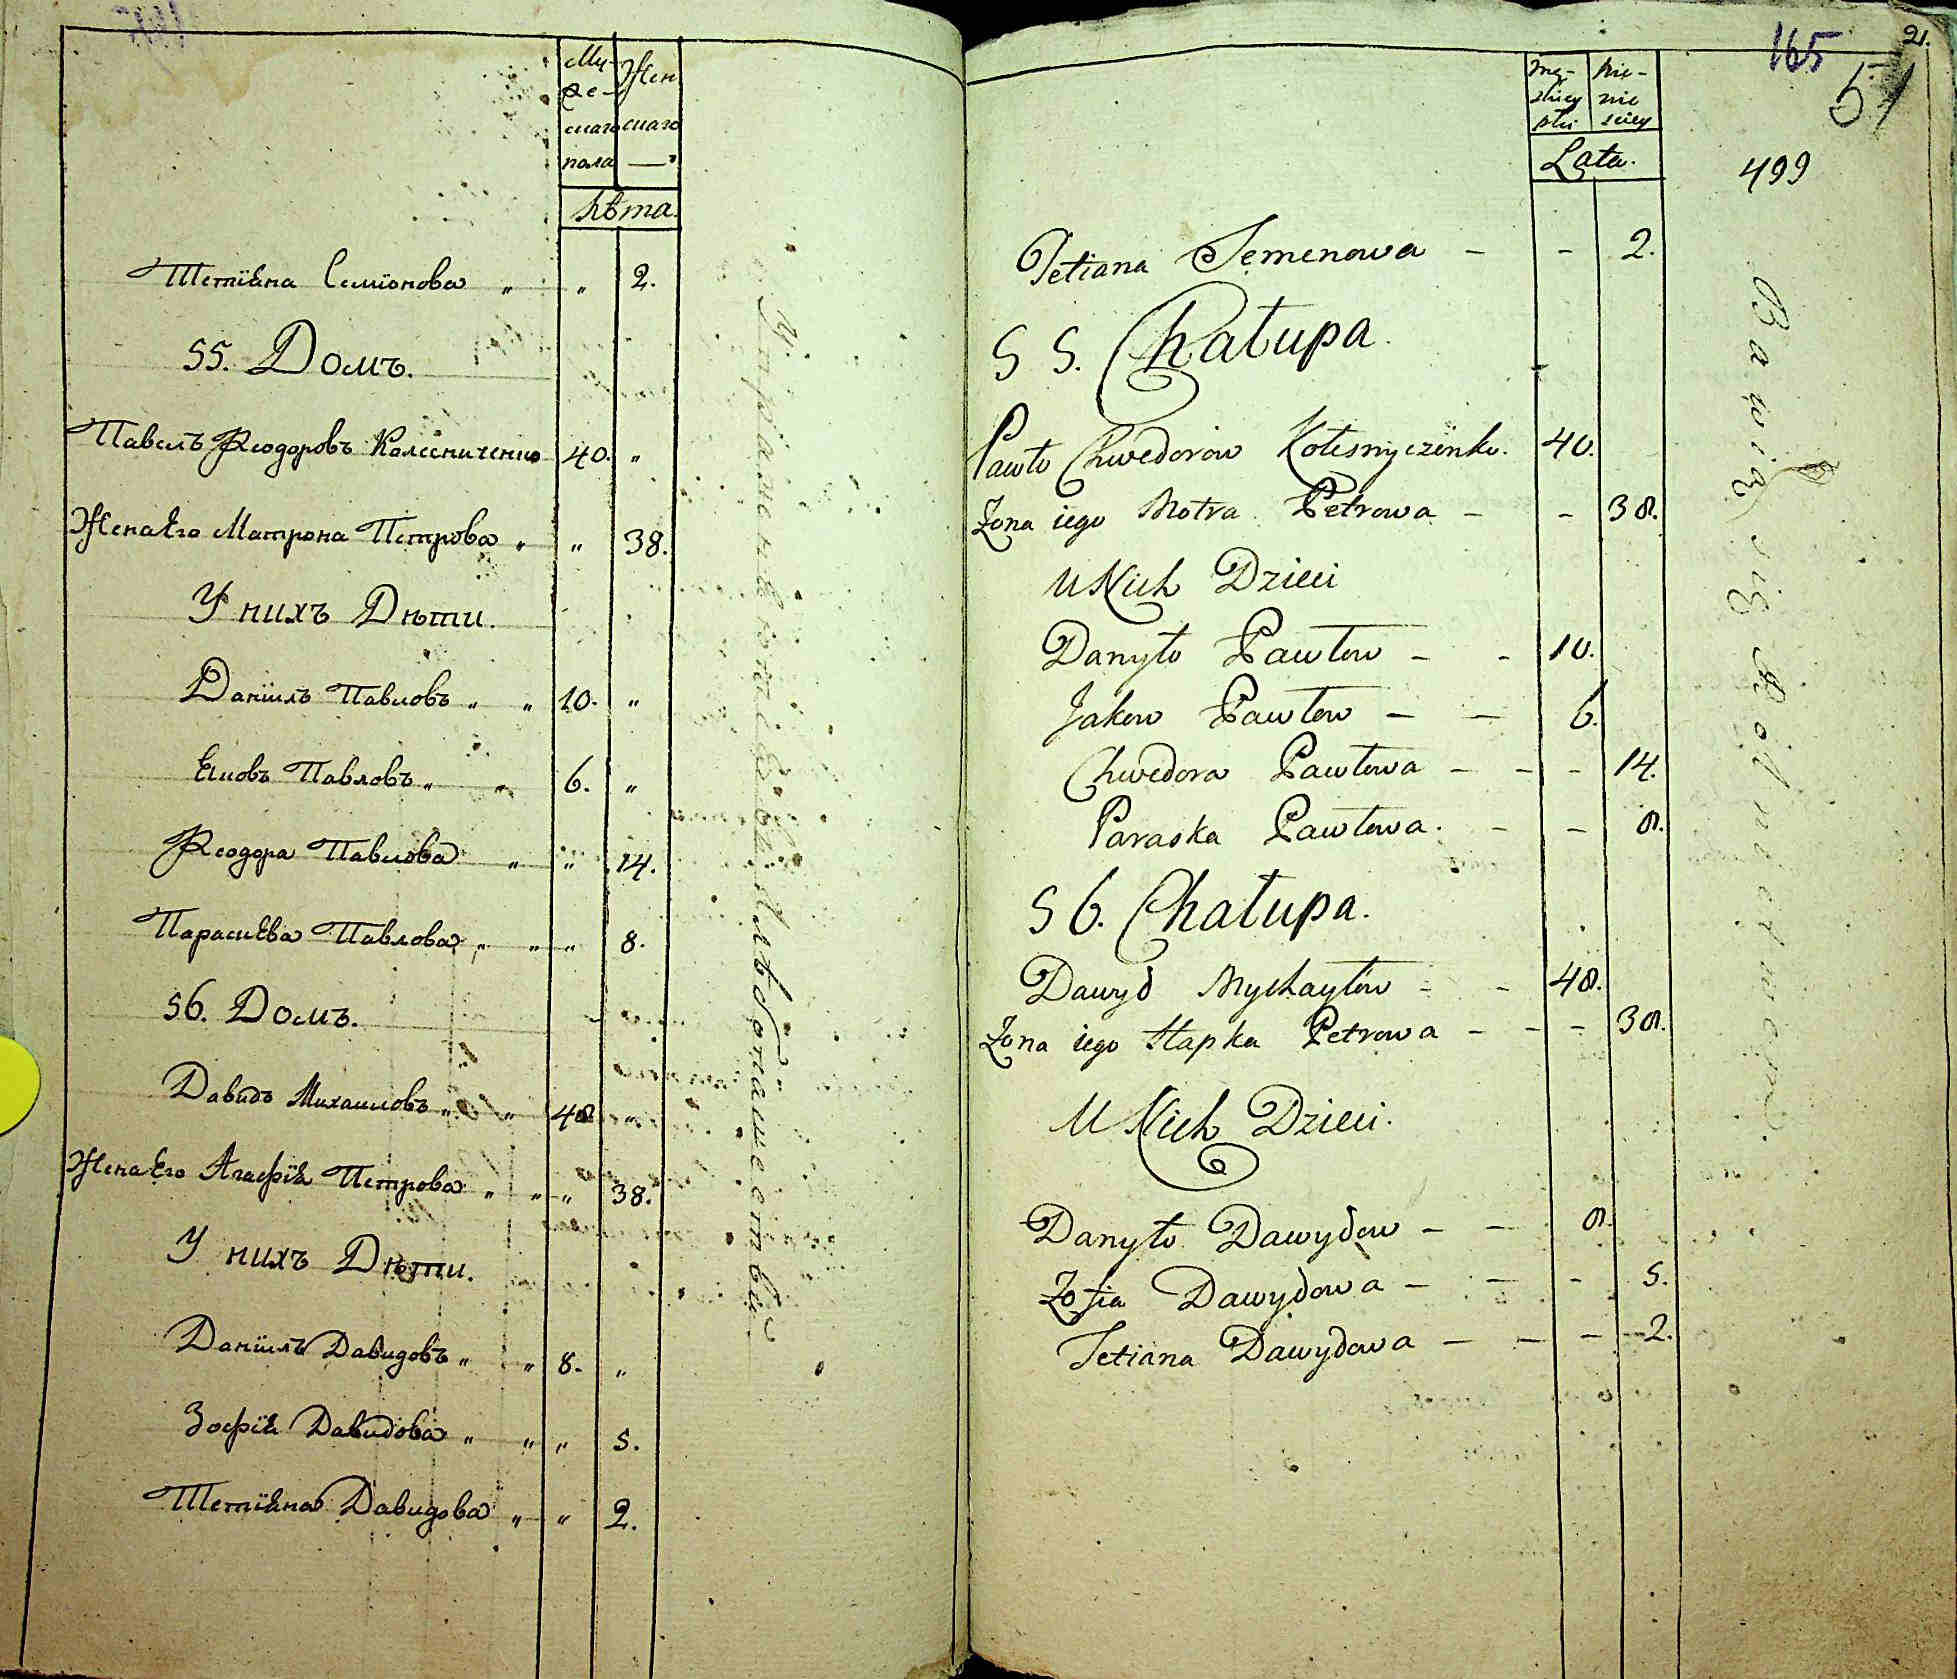 Му-
же-
скаго
пола
Жен
скаго
—"
Лѣта.
Тетіяна Семіонова " " 2.
55. Домъ.
Павелъ Ѳеодоровъ Колесниченко 40. "
Жена Его Матрона Петрова " " 38.
У нихъ Дѣти.
Даніилъ Павловъ " " 10. "
Яковъ Павловъ " " 6. "
Ѳеодора Павлова " " 14.
Параскева Павлова " " " 8.
56. Домъ.
Давидъ Михаиловъ " " 48 "
Жена Его Агафія Петрова " " " 38.
У нихъ Дѣти.
Даніилъ Давидовъ " " 8. "
Зофія Давидова " " " 5.
Тетіяна Давидова " " 2.
Упражняются въ хлѣбопашествѣ
2.
165
51
499
mę-
skiey
płci
nie-
wie
sciey
Lata.
Tetiana Semenowa — - 2.
55. Chałupa.
Pawło Chwedorow Kołesnyczenko. 40.
Żona iego Motra Petrowa - - 38.
U Nich Dzieci
Danyło Pawłow - - 10.
Jakow Pawłow - — 6.
Chwedora Pawłowa - - - 14.
Paraska Pawłowa. - - 8.
56. Chałupa.
Dawyd Mychayłow - - 48.
Żona iego Hapka Petrowa - - - 38.
U Nich Dzieci.
Danyło Dawydow - - 8.
Zofia Dawydowa - - - 5.
Tetiana Dawydowa — - - 2.
Bawią się Rolnictwem.